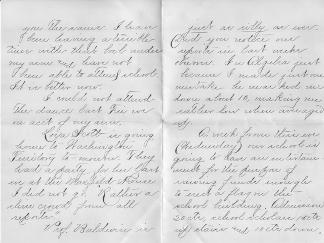 you the same. I have
been having a terrible
time with that boil under
my arm and have not
been able to attend school
It is better now.
I could not attend
the dance last Fri eve
on acct of my arm.
Scott is going
home to Washington
Territory to morrow. They
had a party for her last
eve at the House
I did not go. Rather a
slim crowd from all
reports.
Prof. Baldwin is
just as witty as ever.
Did you notice my
reports in last week
I in Algebra just
because I made just one
mistake he marked me
down about 10, making me
rather low when averaged
up.
A week from this eve
(Wednesday) our school is
going to have an entertain
ment for the purpose of
raising funds enough
to erect a flag on the
school building. Admission
20 cts, school scholars 15 cts
up stairs and 10 cts down.